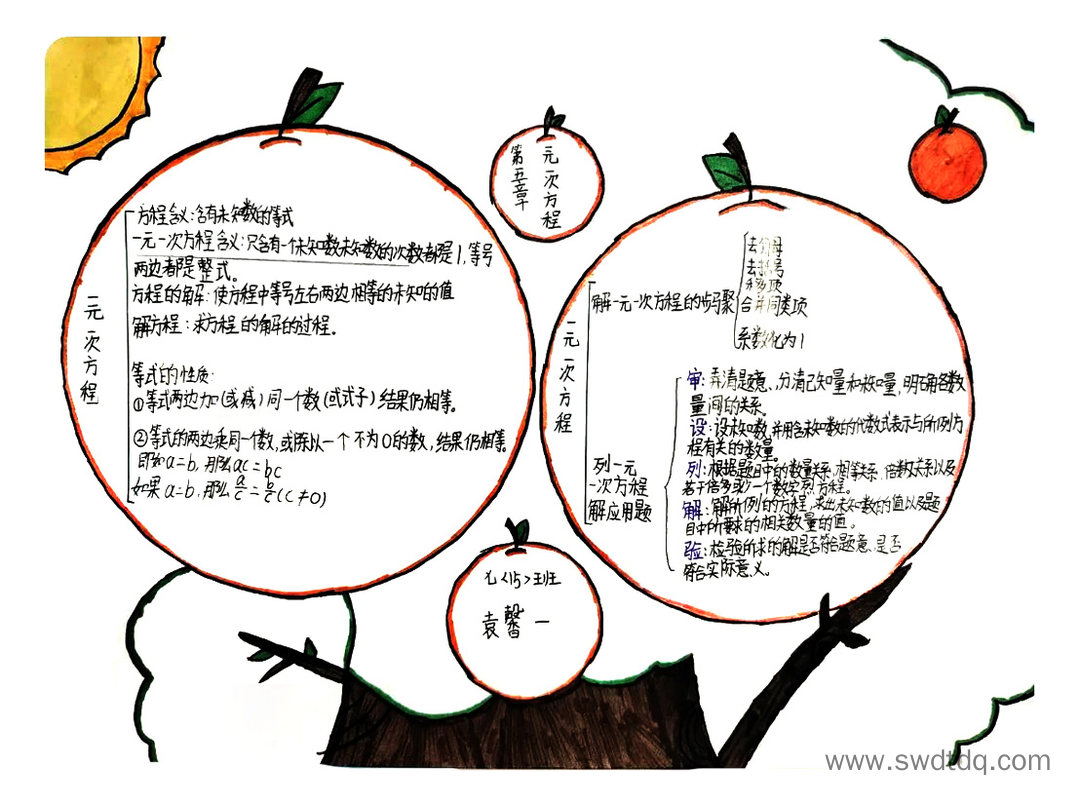 第五章
一元一次方程
一元一次方程
方程含义:含有未知数的等式
一元一次方程含义:只含有一个未知数未知数的次数都是1,等号
两边都是整式。
方程的解:使方程中等号左右两边相等的未知的值
解方程:求方程的解的过程。
等式的性质:
①等式两边加(或减)同一个数(或式子)结果仍相等。
②等式的两边乘同一个数,或除以一个不为0的数,结果仍相等
即如a=b,那么ac=bc
如果a=b,那么a/c=b/c(c≠0)
一元一次方程
解一元一次方程的步骤
去分母
去括号
移项
合并同类项
系数化为1
列一元
一次方程
解应用题
审:弄清题意、分清已知量和未知量,明确各数
量间的关系。
设:设未知数,并用含未知数的代数式表示与所列方
程有关的数量。
列:根据题目中的数量关系,相等关系,倍数关系以及
若干倍多或少一个数字列方程。
解:解所列的方程,求出未知数的值以及题
目中所要求的相关数量的值。
验:检验所求的解是否符合题意、是否
符合实际意义。
七<15>班
袁馨一
www.swdtdq.com